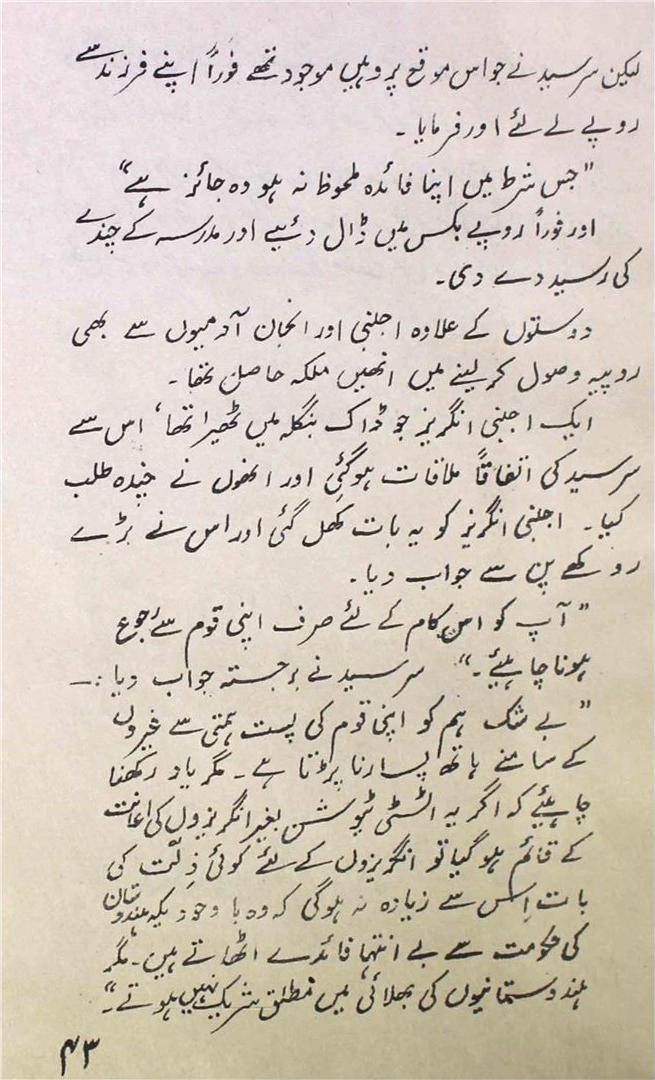 لیکن سرسید نے جو اس موقع پر وہیں موجود تھے فوراً اپنے فرزند سے
روپے لے لئے اور فرمایا ۔
"جس شرط میں اپنا فائدہ ملحوظ نہ ہو وہ جائز ہے"
اور فوراً روپے بکس میں ڈال دئیے اور مدرسہ کے چندے
کی رسید دے دی۔
دوستوں کے علاوہ اجنبی اور انجان آدمیوں سے بھی
روپیہ وصول کر لینے میں انھیں ملکہ حاصل تھا ۔
ایک اجنبی انگریز جو ڈاک بنگلہ میں ٹھیرا تھا، اس سے
سرسید کی اتفاقاً ملاقات ہوگئی اور انھوں نے چندہ طلب
کیا ۔ اجنبی انگریز کو یہ بات کھل گئی اور اس نے بڑے
روکھے پن سے جواب دیا ۔
"آپ کو اس کام کے لئے صرف اپنی قوم سے رجوع
ہونا چاہئیے ۔" سرسید نے برجستہ جواب دیا :۔
"بے شک ہم کو اپنی قوم کی پست ہمتی سے غیروں
کے سامنے ہاتھ پسارنا پڑتا ہے ۔ مگر یاد رکھنا
چاہئیے کہ اگر یہ انسٹی ٹیوشن بغیر انگریزوں کی اعانت
کے قائم ہو گیا تو انگریزوں کے لئے کوئی ذِلّت کی
بات اِس سے زیادہ نہ ہوگی کہ وہ باوجودیکہ ہندوستان
کی حکومت سے بے انتہا فائدے اٹھاتے ہیں ۔ مگر
ہندوستانیوں کی بھلائی میں مطلق شریک نہیں ہوتے ۔"
۴۳